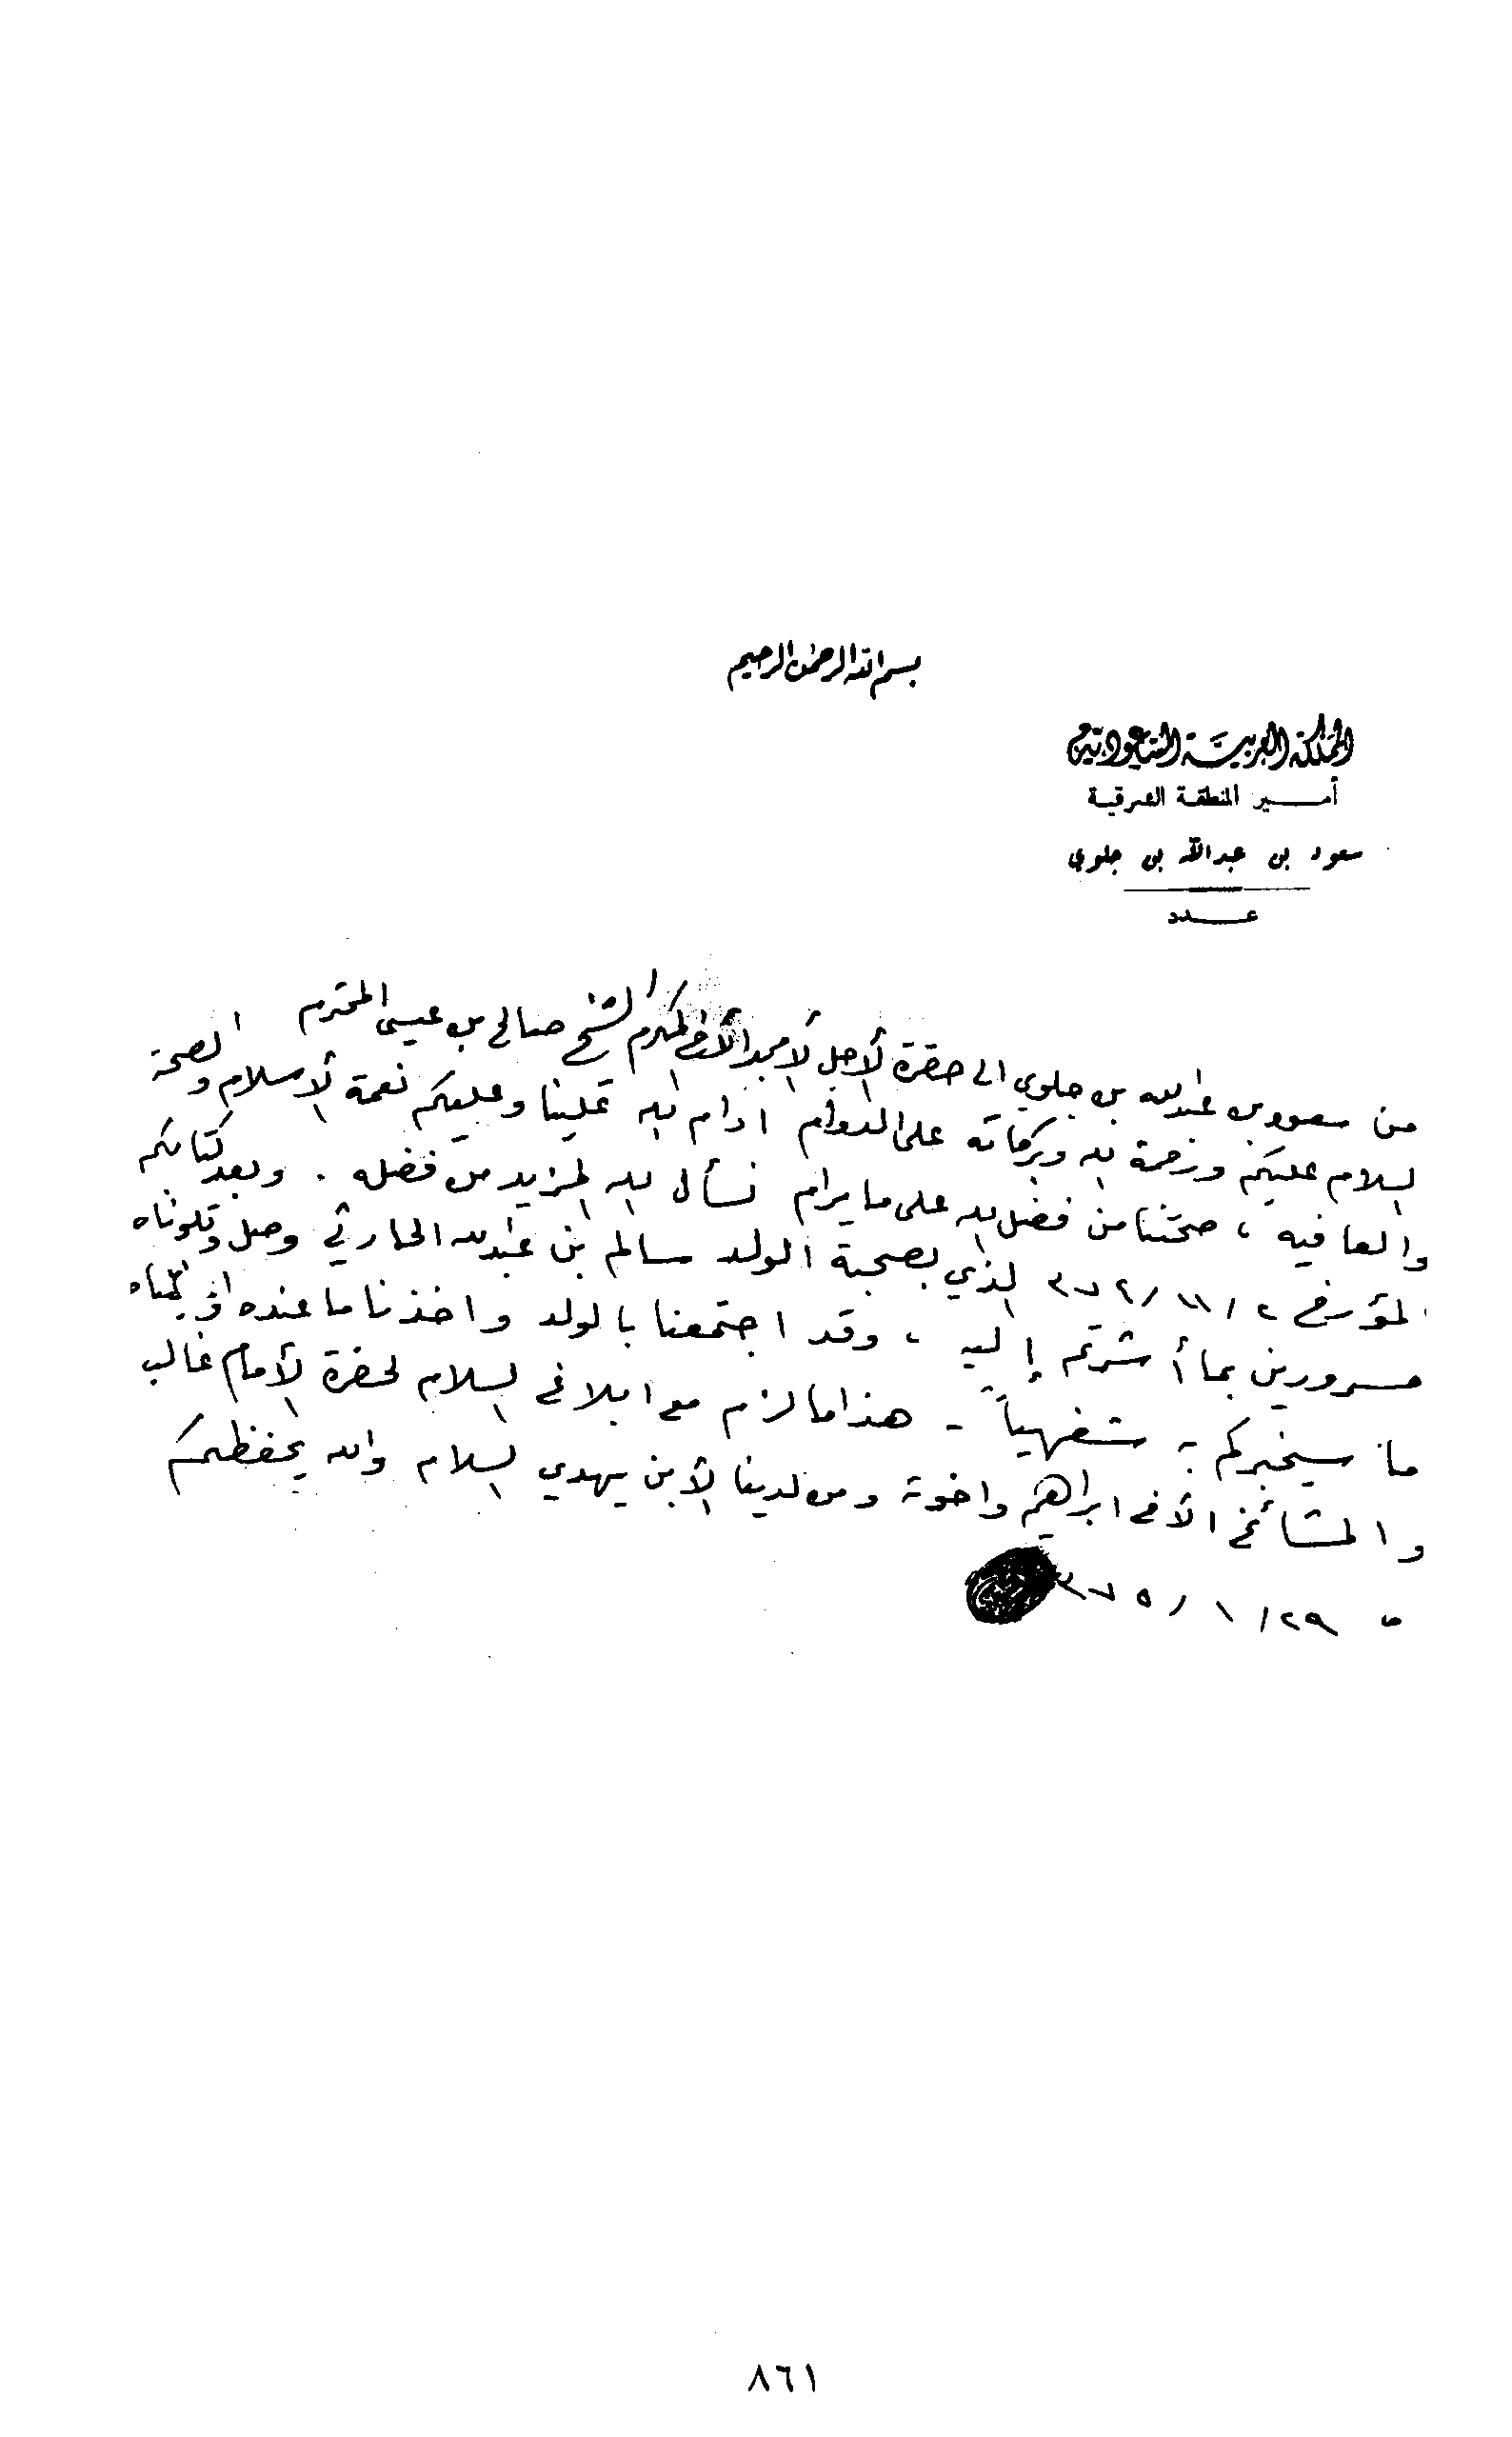 بسم الله الرحمن الرحيم
المملكة العربية السعودية
أمير المنطقة الشرقية
سعود بن عبدالله بن جلوي
عدد
من سعود بن عبدالله بن جلوي الى حضرة الأجل الأمجد الأفخم المكرم الشيخ صالح بن عيسى المحترم
السلام عليكم ورحمة الله وبركاته على الدوام ادام الله علينا وعليكم نعمة الأسلام والصحة
والعافيه ، صحتنا من فضل الله على ما يرام نسأل الله المزيد من فضله . وبعد كتابكم
المؤرخ الذي بصحبة الولد سالم بن عبدالله الحارثي وصل وتلوناه
مسرورين بما أشرتم إليه ، وقد اجتمعنا بالولد واخذنا ما عنده
ما سيخبركم به شفهياً - هذا ما لزم مع ابلاغ السلام لحضرة الأمام غالب
والمشائخ الأخ ابراهيم واخوته ومن لدينا الأبن يهدي السلام والله يحفظكم
٢٩/ ١ / ٣٧٥
٨٦١